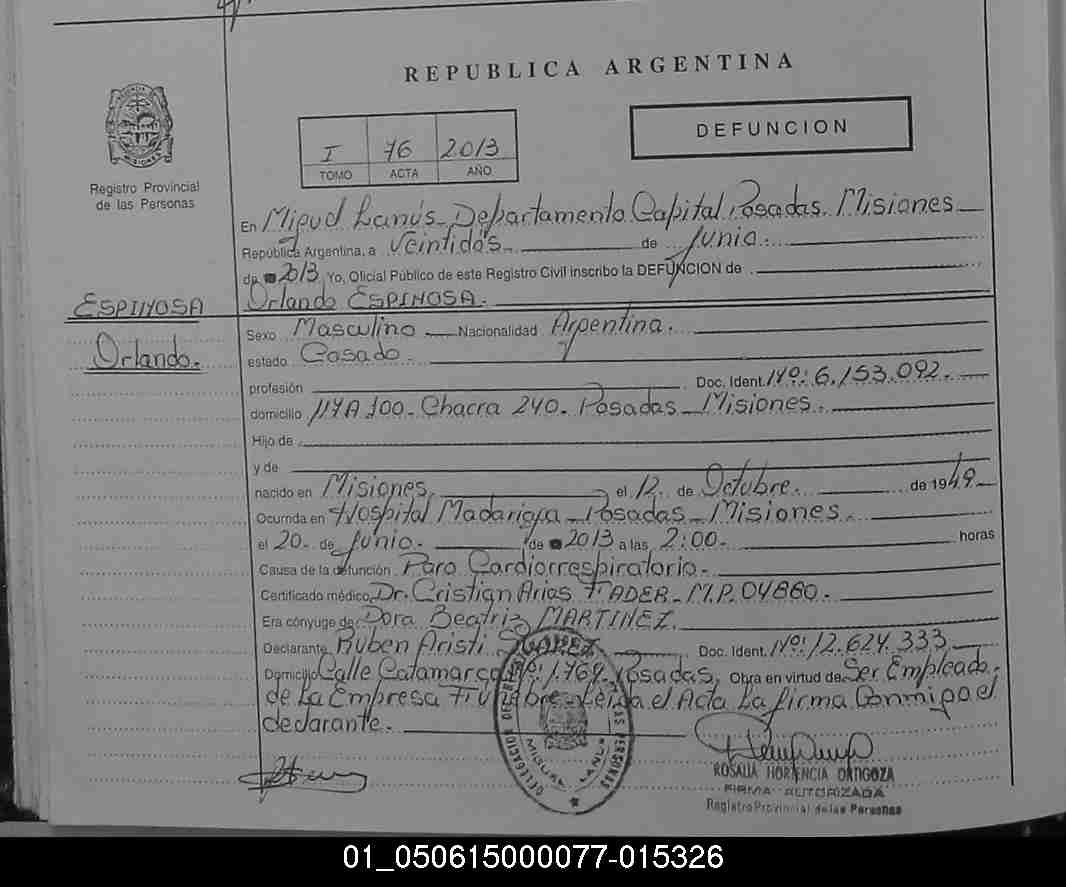 REPUBLICA ARGENTINA
DEFUNCION
I 76 2013
TOMO ACTA AÑO
Registro Provincial
de las Personas
En Miguel Lanús - Departamento Capital Posadas. Misiones
República Argentina, a Veintidós de Junio.
de 2013 Yo, Oficial Público de este Registro Civil inscribo la DEFUNCION de
ESPINOSA
Orlando.
Orlando ESPINOSA.
Sexo Masculino Nacionalidad Argentina.
estado Casado.
profesión Doc. Ident. Nº: 6.153.092.
domicilio 100. Chacra 240. Posadas - Misiones.
Hijo de
y de
nacido en Misiones. el 12. de Octubre. de 1949
Ocurrida en Hospital Madariaga - Posadas - Misiones.
el 20. de Junio. de 2013 a las 2:00. horas
Causa de la defunción Paro Cardiorrespiratorio.
Certificado médico Dr. Cristian Arias FADER - M.P. 04860.
Era cónyuge de: Dora Beatriz MARTINEZ.
Declarante Ruben Aristi Doc. Ident. Nº: 12.624.333.
Domicilio Calle Catamarca Nº: 1.769. Posadas. Obra en virtud de Ser Empleado.
de La Empresa Fúnebre. Leída el Acta La firma Conmigo el
declarante.
DELEGACION DE REGISTRO DE LAS PERSONAS
MIGUEL LANUS
ROSALIA HORTENCIA ORTIGOZA
FIRMA AUTORIZADA
Registro Provincial de las Personas
01_050615000077-015326